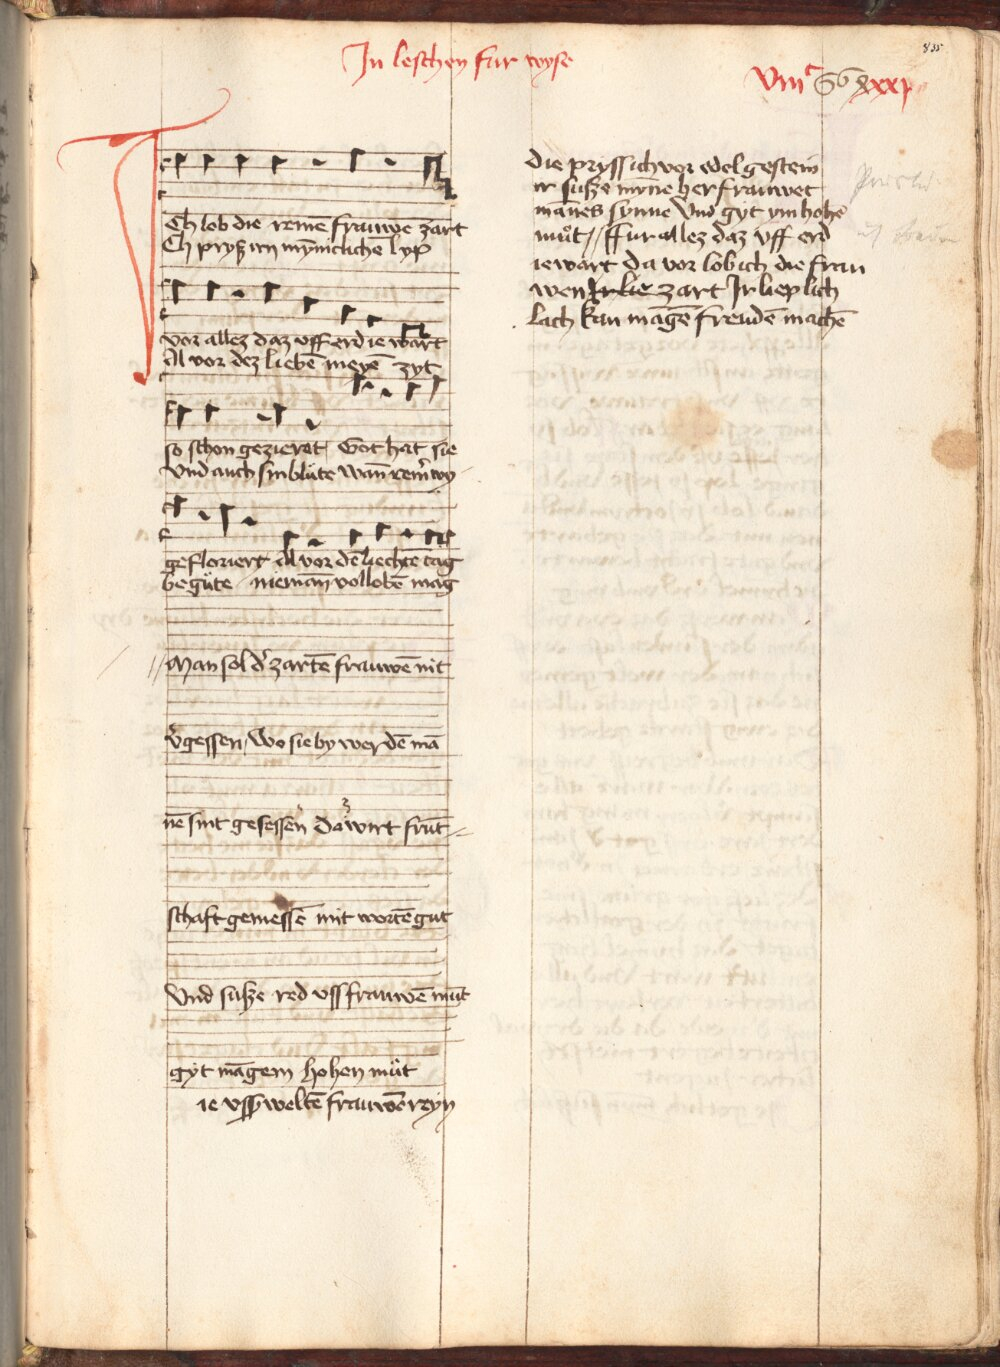 In leschen fur wyse
835
Ch lob die reinē frauwē zart
Ch prysz irn mȳniclichē lyp
vor allez daz vff erd ie wart
Al vor dez liebē meyē zyt
so schon gezieret / Got hat sie
Vnd auch sin blüte wan reine wy
gefloriert Al vor dē liechtē tag
be güte / nieman vollobē mag
Man sol d' zartē frauwē nit
v'gessen / Wo sie by werdē mā
nē sint gesessen Da wirt frūt
schaft gemessē mit wortē gut
Vnd susze red vss frauwē mūt
gyt māgem hohen müt
ie vss weltē frauwē reyn
die pryss ich vor edel gestein
ir susze mīne her frauwet
mānes synne Vnd gyt ym hohē
müt // Fur allez daz vff erd
ie wart da vor lob ich die frau
wen Ir lie zart Ir lieplich
lach kan māgē freudē machē